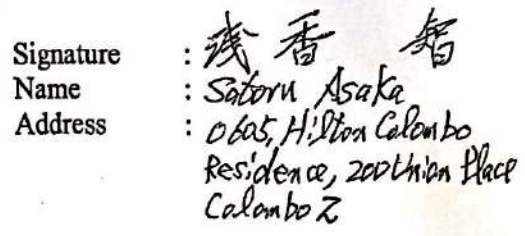 Signature : 浅香 智
Name : Satoru Asaka
Address : 0605, Hilton Colombo
Residence, 200 Union Place
Colombo 2